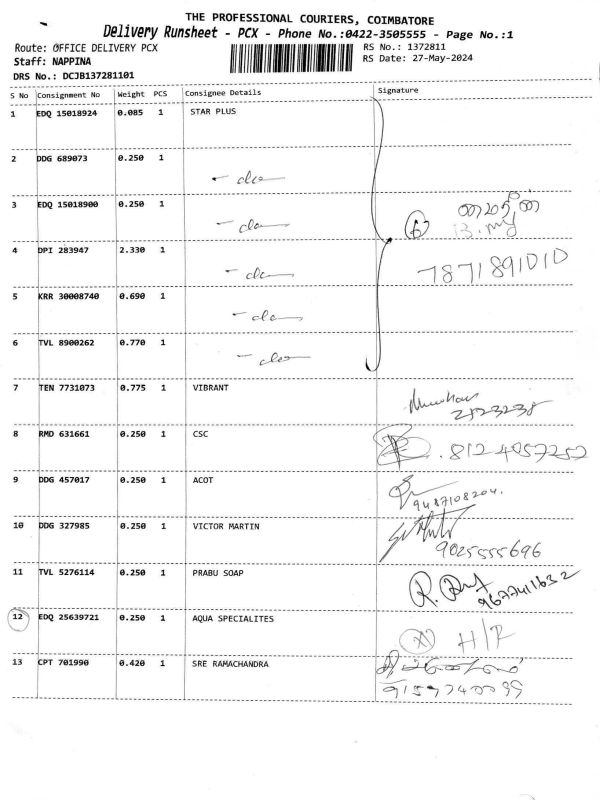 THE PROFESSIONAL COURIERS, COIMBATORE
Delivery Runsheet - PCX - Phone No.:0422-3505555 - Page No.:1
Route: OFFICE DELIVERY PCX
RS No.: 1372811
Staff: NAPPINA
RS Date: 27-May-2024
DRS No.: DCJB137281101
S No Consignment No Weight PCS Consignee Details Signature
1 EDQ 15018924 0.085 1 STAR PLUS
2 DDG 689073 0.250 1
- do
3 EDQ 15018900 0.250 1
- do
6
B.my
4 DPI 283947 2.330 1
- do
7871891010
5 KRR 30008740 0.690 1
- do
6 TVL 8900262 0.770 1
- do
7 TEN 7731073 0.775 1 VIBRANT
2123238
8 RMD 631661 0.250 1 CSC
8124057252
9 DDG 457017 0.250 1 ACOT
9487108204.
10 DDG 327985 0.250 1 VICTOR MARTIN
9025555696
11 TVL 5276114 0.250 1 PRABU SOAP
9677411632
12 EDQ 25639721 0.250 1 AQUA SPECIALITES
H/R
13 CPT 701990 0.420 1 SRE RAMACHANDRA